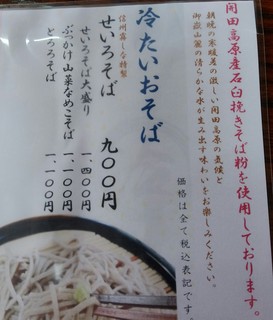 開田高原産石臼挽きそば粉を使用しております。
朝晩の寒暖差の激しい開田高原の気候と
御嶽山麓の清らかな水が生み出す味わいをお楽しみください。
価格は全て税込表記です。
冷たいおそば
信州霧しな特製
せいろそば 九〇〇円
せいろそば大盛り 一、四〇〇円
ぶっかけ山菜なめこそば 一、一〇〇円
とろろそば 一、一〇〇円